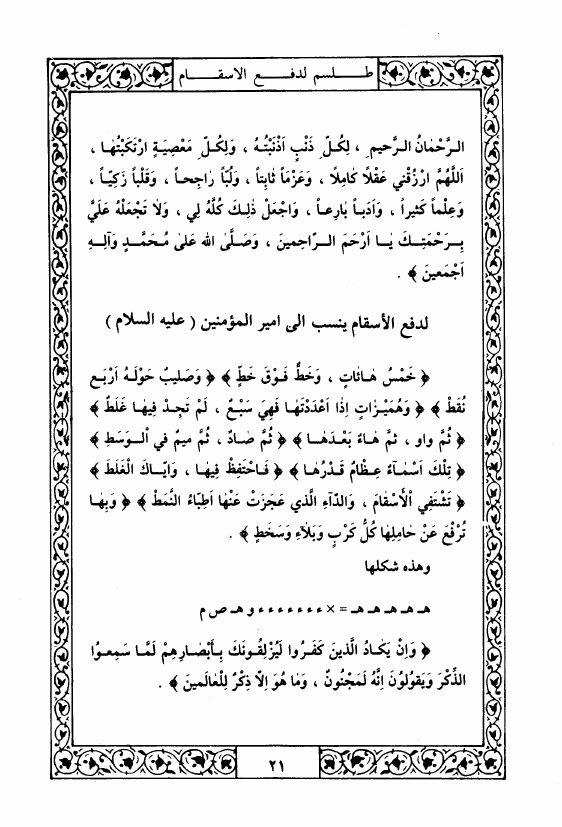 طلسم لدفع الاسقام
الرَّحْمٰانُ الرَّحيم ِ ، لِكُلّ ِ ذَنْبٍ اَذْنَبْتُهُ ، وَلِكُلّ ِ مَعْصِيَةٍ ارْتَكَبْتُهٰا ،
اَللّٰهُمَّ ارْزُقْني عَقْلاً كٰامِلاً ، وَعَزْماً ثٰابِتاً ، وَلُبّاً رٰاجِحاً ، وَقَلْباً زَكِيّاً ،
وَعِلْماً كَثيراً ، وَاَدَباً بٰارِعاً ، وَاجْعَلْ ذٰلِكَ كُلَّهُ لي ، وَلاٰ تَجْعَلْهُ عَلَيَّ
بِرَحْمَتِكَ يٰا اَرْحَمَ الرّٰاحِمينَ ، وَصَلَّى الله عَلىٰ مُحَمَّدٍ وَآلِهِ
اَجْمَعينَ ﴾ .
لدفع الأسقام ينسب الى امير المؤمنين ( عليه السلام )
﴿ خَمْسُ هٰائٰاتٍ ، وَخَطٌّ فَوْقَ خَطٍّ ﴾ ﴿ وَصَليبٌ حَوْلَهُ اَرْبَع
نُقَطْ ﴾ ﴿ وَهُمَيْزٰاتٍ اِذٰا اَعْدَدْتَهٰا فَهِيَ سَبْعٌ ، لَمْ تَجِدْ فيهٰا غَلَطْ ﴾
﴿ ثُمَّ واو ، ثمَّ هٰاءُ بَعْدَهٰا ﴾ ﴿ ثُمَّ صٰادٌ ، ثُمَّ ميمٌ في اْلوَسَطِ ﴾
﴿ تِلْكَ اَسْمٰآءٌ عِظٰامٌ قَدْرُهٰا ﴾ ﴿ فَاحْتَفِظْ فيهٰا ، وَايّٰاكَ الْغَلَطَ ﴾
﴿ تَشْتَفِي اْلأَسْقٰامَ ، وَالدّٰآءِ الَّذي عَجَزَتْ عَنْهٰا اَطِبّٰاءُ النَّمَطْ ﴾ ﴿ وَبِهٰا
تُرْفَع عَنْ حٰامِلِهٰا كُلُّ كَرْبٍ وَبَلاٰءٍ وَسَخَطٍ ﴾ .
وهذه شكلها
هـ هـ هـ هـ هـ = × ء ء ء ء ء ء ء و هـ ص م
﴿ وَاِنْ يَكٰادُ الَّذينَ كَفَرُوا لَيُزْلِقُونَكَ بِأَبْصٰارِهِمْ لَمّٰا سَمِعوُا
الذِّكْرَ وَيَقوُلوُنَ اِنَّهُ لَمَجْنوُنٌ ، وَمٰا هُوَ اِلاّ ذِكْرٌ لِلْعٰالَمينَ ﴾ .
٢١